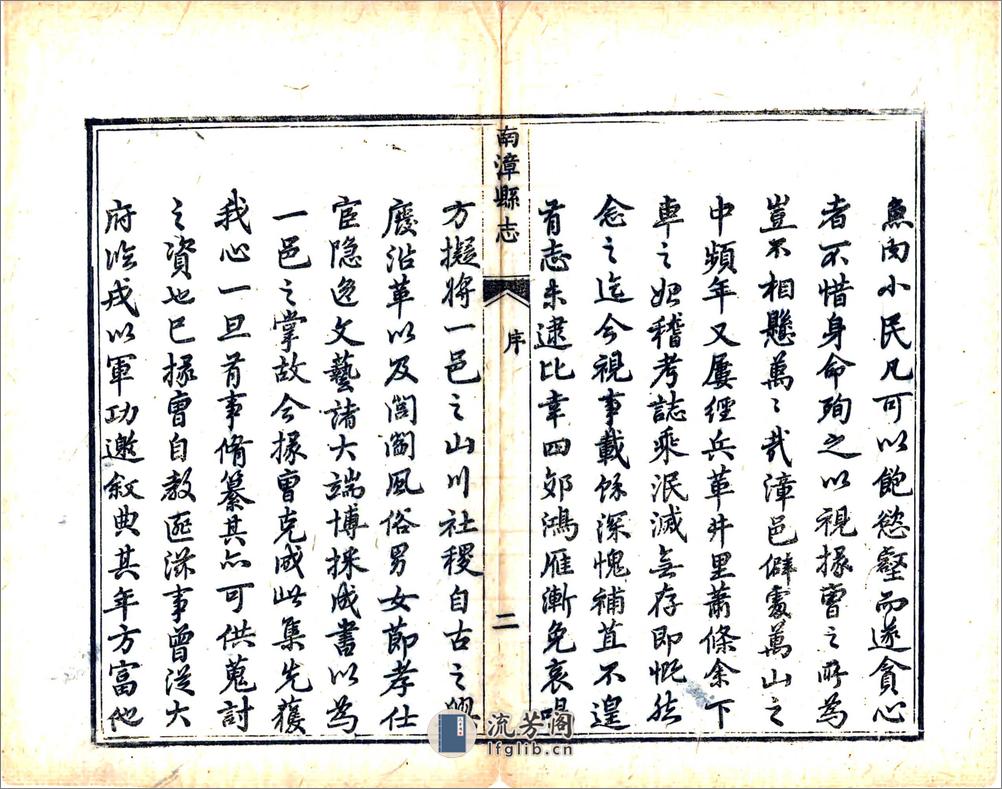 魚肉小民凡可以飽慾壑而遂貪心
者不惜身命殉之以視掾曹之所為
豈不相懸萬〻哉漳邑僻處萬山之
中頻年又屢經兵革井里蕭條余下
車之始稽考誌乘泯滅無存即慨然
念之迄今視事載餘深愧補苴不遑
有志未逮比幸四郊鴻雁漸免哀鳴
南漳縣志
序
二
方擬將一邑之山川社稷自古之興
廢沿革以及閭閻風俗男女節孝仕
宦隐逸文藝諸大端博採成書以為
一邑之掌故今掾曹克成此集先獲
我心一旦有事脩纂其亦可供蒐討
之資也已掾曹自教匪滋事曾從大
府涖戎以軍功邀叙典其年方富他
流芳阁
lfglib.cn